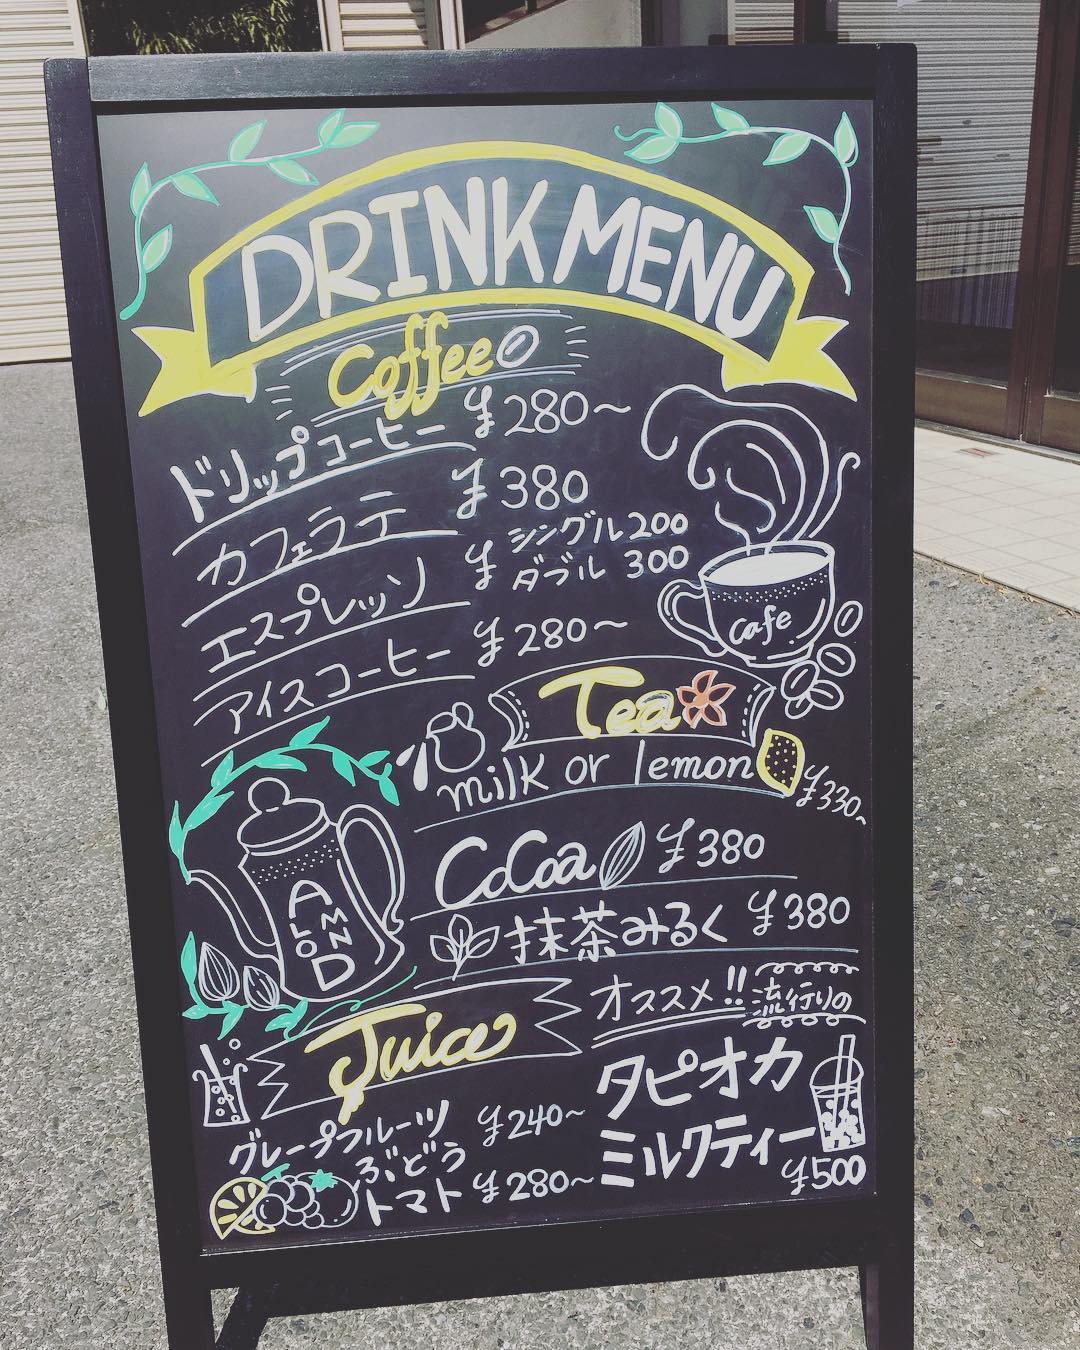 DRINK MENU
Coffee
ドリップコーヒー ¥280~
カフェラテ ¥380
エスプレッソ ¥ シングル 200
ダブル 300
アイスコーヒー ¥280~
Cafe
Tea
milk or lemon ¥330~
CoCoa ¥380
抹茶みるく ¥380
ALMOND
オススメ!! 流行りの
タピオカ
ミルクティー
¥500
Juice
グレープフルーツ ¥240~
ぶどう
トマト ¥280~